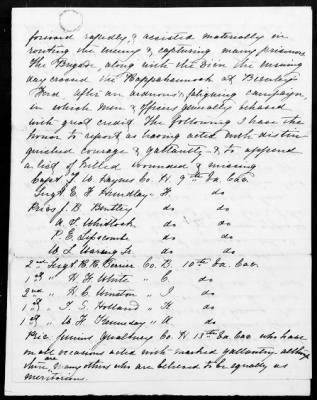 forward rapidly, & assisted materially in
routing the enemy & capturing many prisoners
The Brigade, along with the Divn the ensuing
day crossed the Rappahannock at Beverley
Ford after an arduous & fatiguing campaign,
in which men & officers generally behaved
with great credit. The following I have the
honor to report as having acted with distin
guished courage & gallantry & to append
a list of killed wounded & missing
Capt W. Haynes Co. H. 9th Va. Cav.
Sergt E. H. Hundley H do
Privs J. B. Bentley do do
A. F. Whitlock do do
P. E. Lipscomb do do
W. L. Waring Jr. do do
2nd Sergt Co. B. 10th Va. Cav.
1st " H. H. White " E. do
2nd " H. C. Winston " I do
1st " T. S. Holland " K do
1st " W. H. " A do
Priv. Junius Co. H. 13th Va Cav who have
on all occasions acted with marked gallantry. altho
there are many others who are believed to be equally as
meritorious.